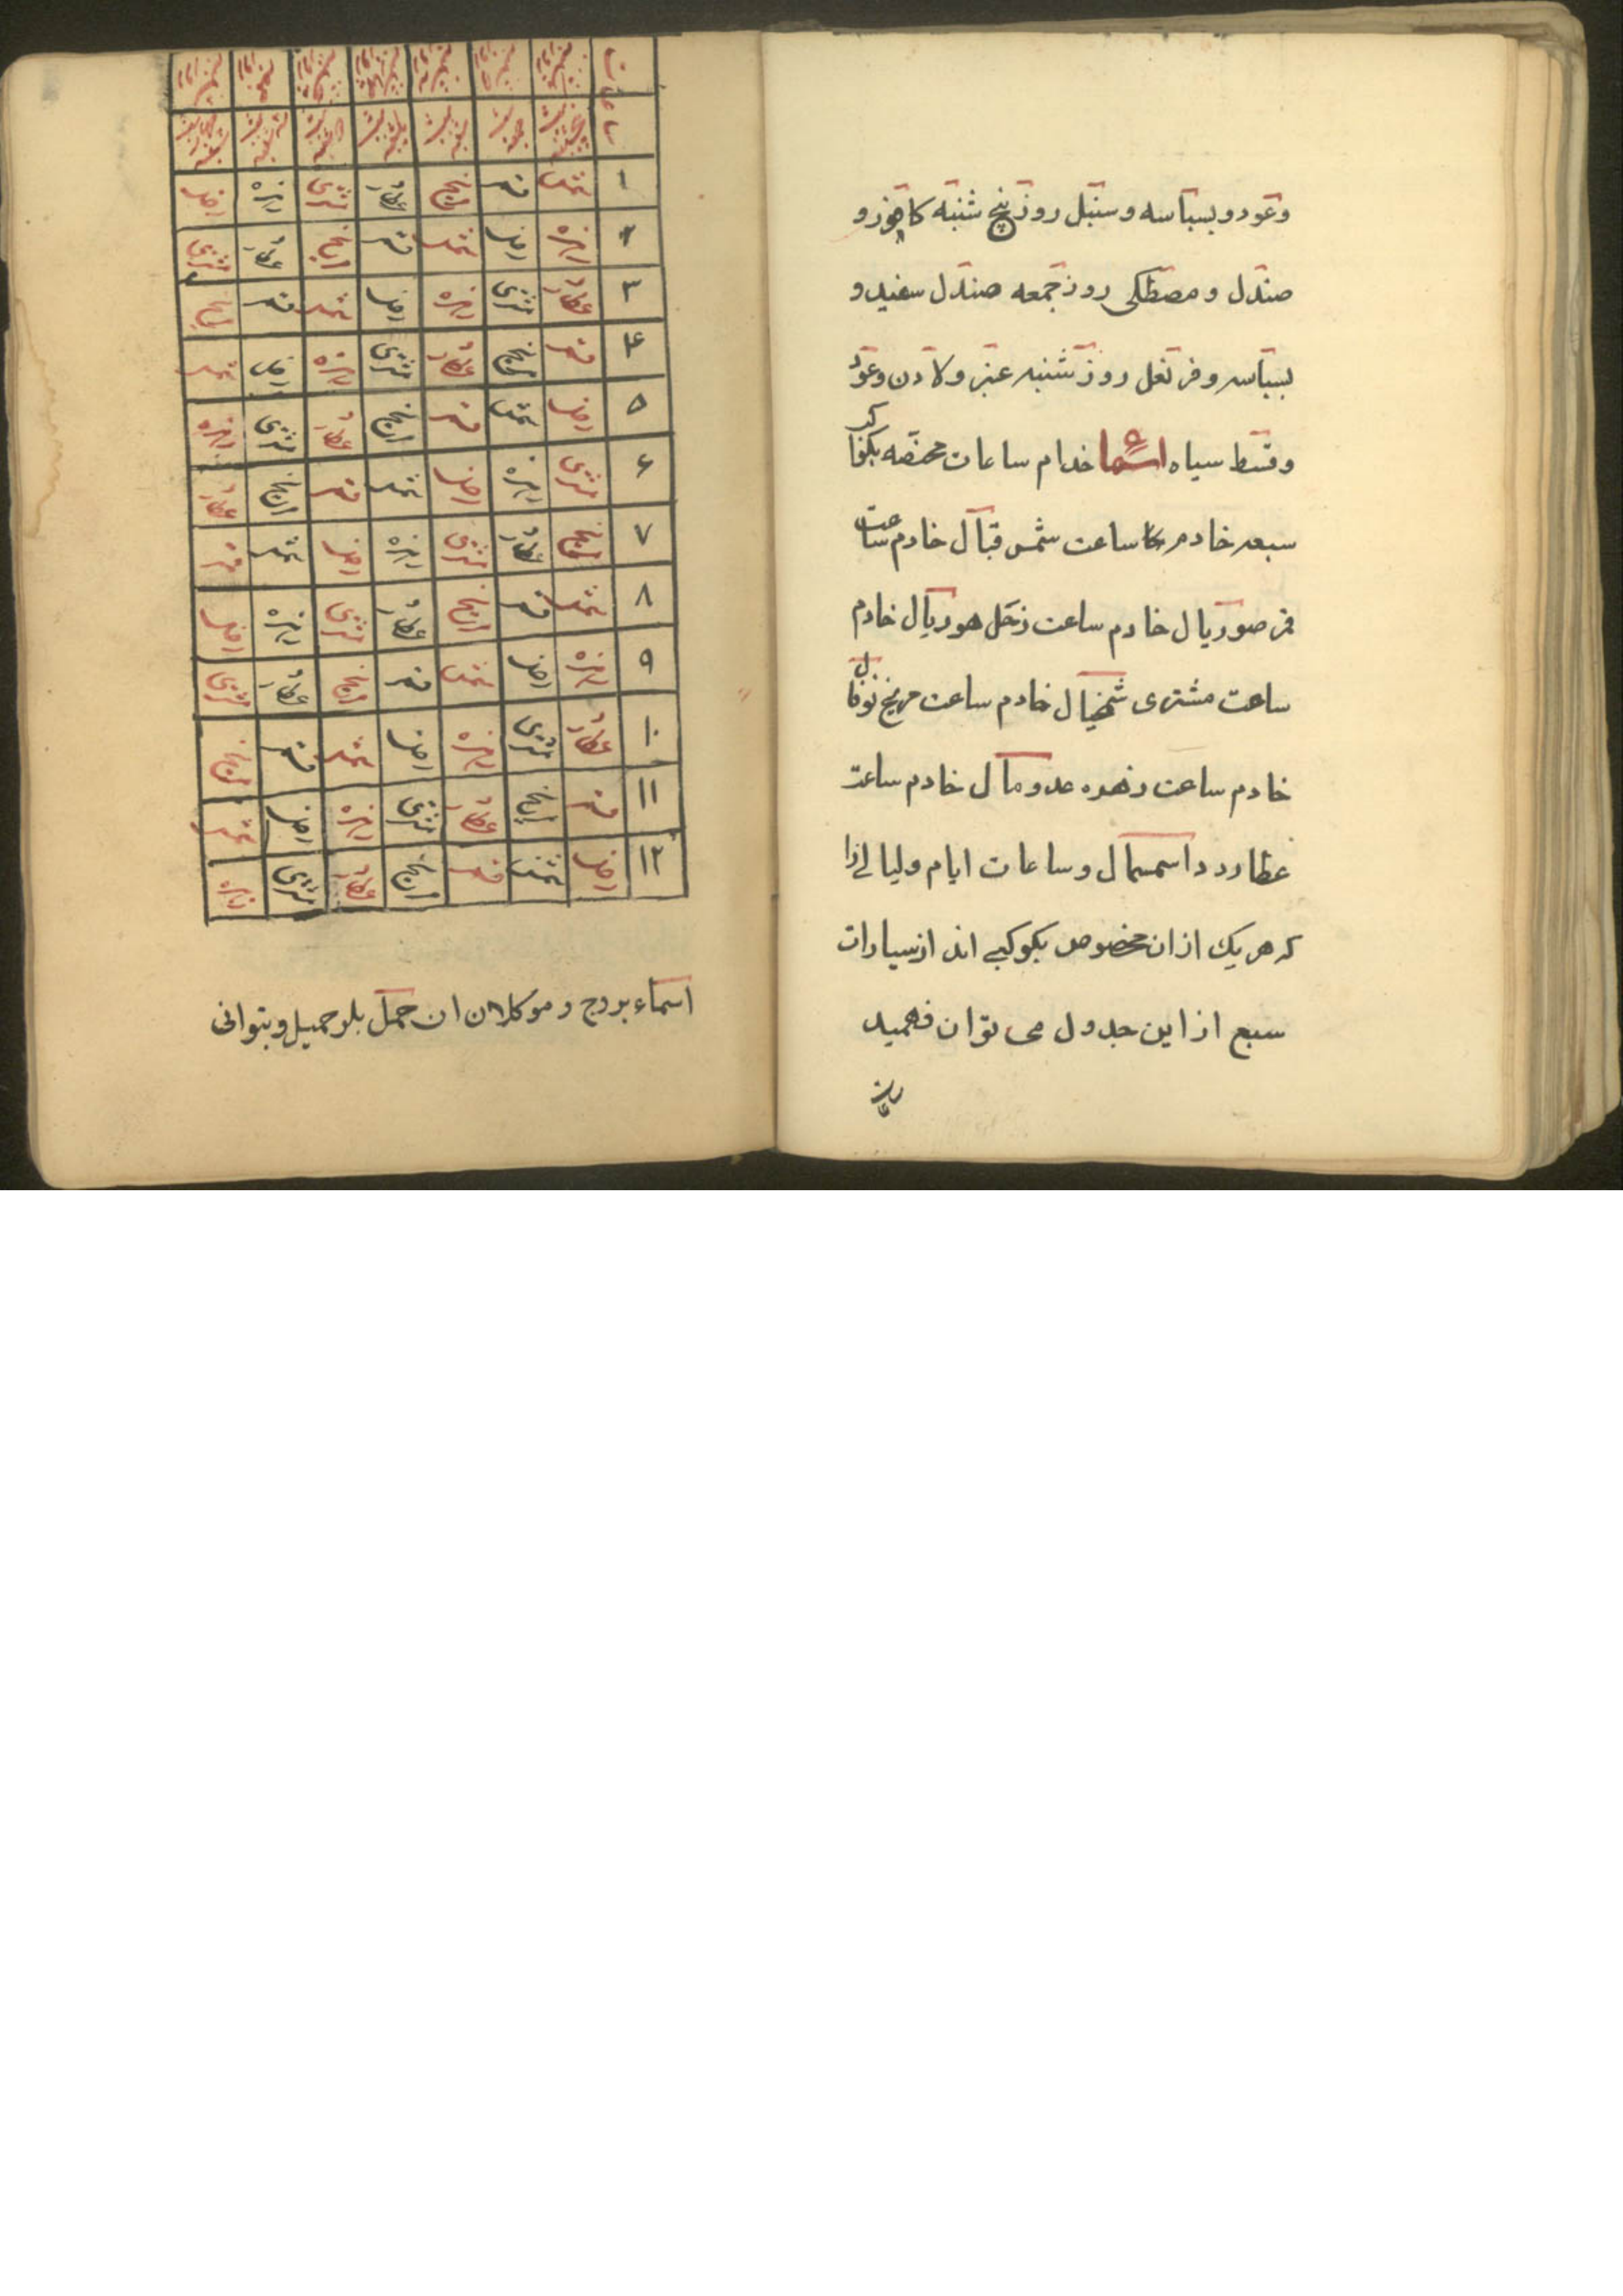 وعود و بسباسه و سنبل روز پنج شنبه کافور و
صندل و مصطکی روز جمعه صندل سفید و
بسباسه و قرنفل روز شنبه عنبر ولادن وعود
وقسط سیاه اسما خدام ساعات مختصه بکواکب
سبعه خادم ساعت شمس قبال خادم ساعت
قمر صوریال خادم ساعت زحل هوریال خادم
ساعت مشتری شمخیال خادم ساعت مریخ نوفال
خادم ساعت زهره عدومال خادم ساعت
عطارد داسمسمال وساعات ایام ولیالے را
که هر یك از ان مخصوص بکوکبے اند از سیارات
سبع از این جدول می توان فهمید
ساعات
۱ شمس قمر مریخ عطارد مشتری زهره زحل
۲ زهره زحل شمس قمر مریخ عطارد مشتری
۳ عطارد مشتری زهره زحل شمس قمر مریخ
۴ قمر مریخ عطارد مشتری زهره زحل شمس
۵ زحل شمس قمر مریخ عطارد مشتری زهره
۶ مشتری زهره زحل شمس قمر مریخ عطارد
۷ مریخ عطارد مشتری زهره زحل شمس قمر
۸ شمس قمر مریخ عطارد مشتری زهره زحل
۹ زهره زحل شمس قمر مریخ عطارد مشتری
۱۰ عطارد مشتری زهره زحل شمس قمر مریخ
۱۱ قمر مریخ عطارد مشتری زهره زحل شمس
۱۲ زحل شمس قمر مریخ عطارد مشتری زهره
اسماء بروج و موکلان ان حمل بلوحمیل و بتوانی